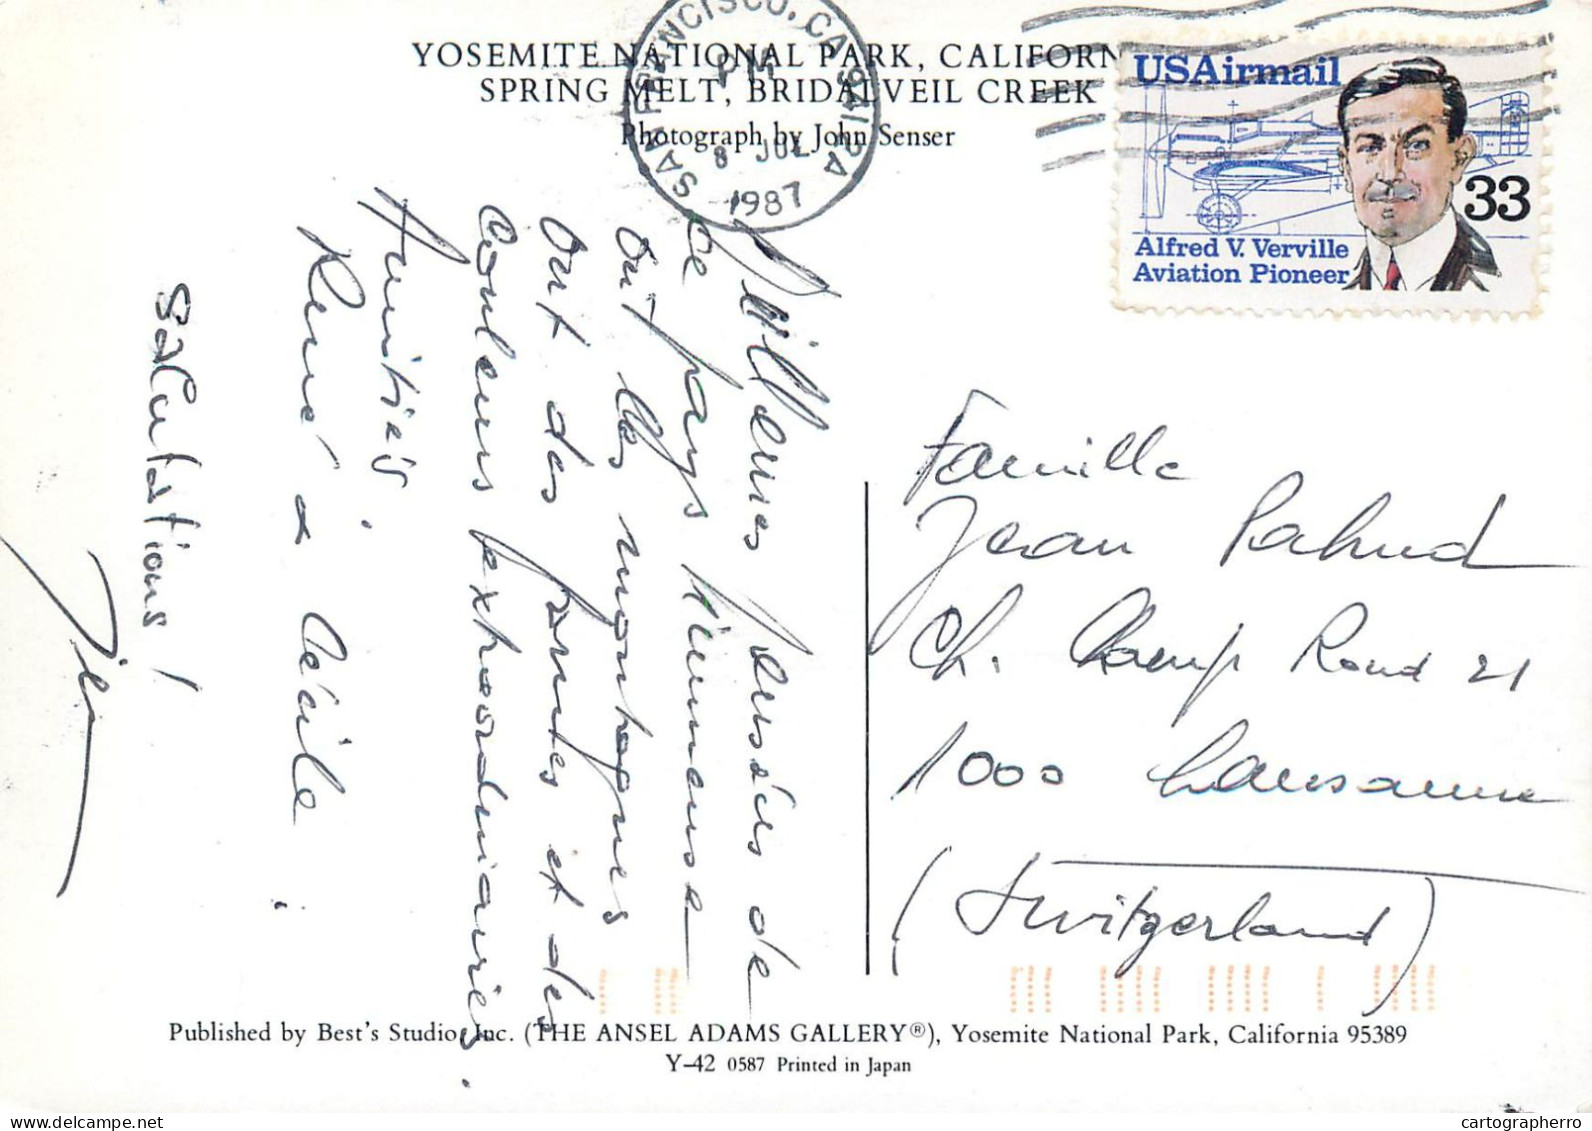 YOSEMITE NATIONAL PARK, CALIFORN
SPRING MELT, BRIDALVEIL CREEK
Photograph by John Senser
SAN FRANCISCO, CA 941
PM
8 JUL
1987
USAirmail
33
Alfred V. Verville
Aviation Pioneer
Meilleures pensées de
ce pays immense
où les montagnes
ont des formes et des
couleurs extraordinaires.
Amitiés.
René & Cécile
Salutations!
Famille
Jean Pahud
Ch. Champ Rond 21
1000 Lausanne
(Switzerland)
Published by Best's Studio, Inc. (THE ANSEL ADAMS GALLERY®), Yosemite National Park, California 95389
Y-42 0587 Printed in Japan
delcampe.net
cartographerro